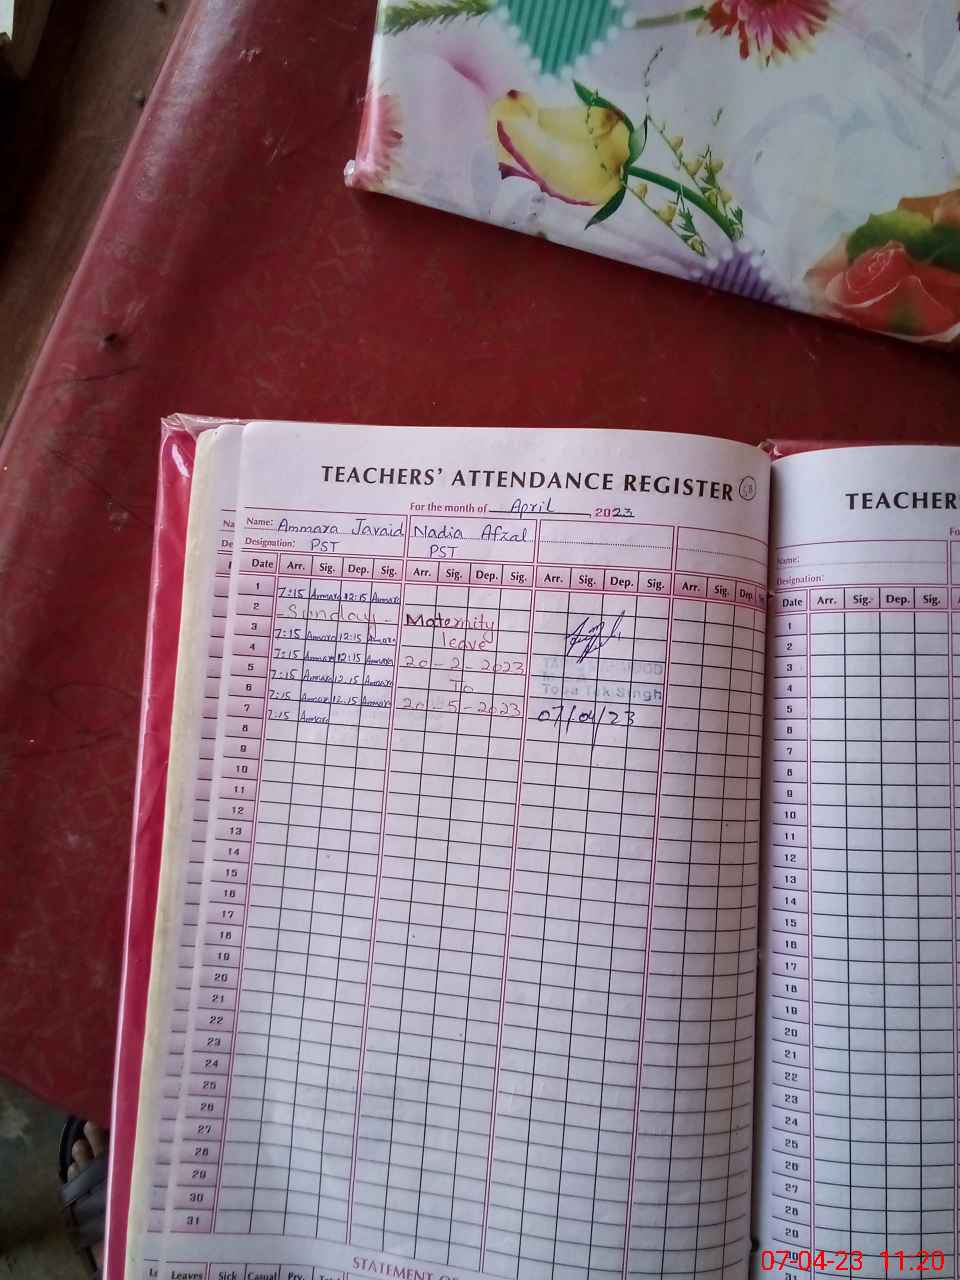 TEACHERS' ATTENDANCE REGISTER 58
For the month of April, 2023
Name: Ammara Javaid Nadia Afzal
Designation: PST PST
Date Arr. Sig. Dep. Sig. Arr. Sig. Dep. Sig. Arr. Sig. Dep. Sig. Arr. Sig. Dep.
1 7:15 Ammara 12:15 Ammara
2 - Sunday - Maternity
3 7:15 Ammara 12:15 Ammara leave
4 7:15 Ammara 12:15 Ammara 20-2-2023
5 7:15 Ammara 12.15 Ammara To Toba Tek Singh
6 7:15 Ammara 12.15 Ammara 20-5-2023 07/04/23
7 7:15 Ammara
8
9
10
11
12
13
14
15
16
17
18
19
20
21
22
23
24
25
26
27
28
29
30
31
STATEMENT
Leaves Sick Casual Prv.
TEACHER
Name:
Designation:
Date Arr. Sig. Dep. Sig.
1
2
3
4
5
6
7
8
9
10
11
12
13
14
15
16
17
18
19
20
21
22
23
24
25
26
27
28
29
30
07-04-23 11.20